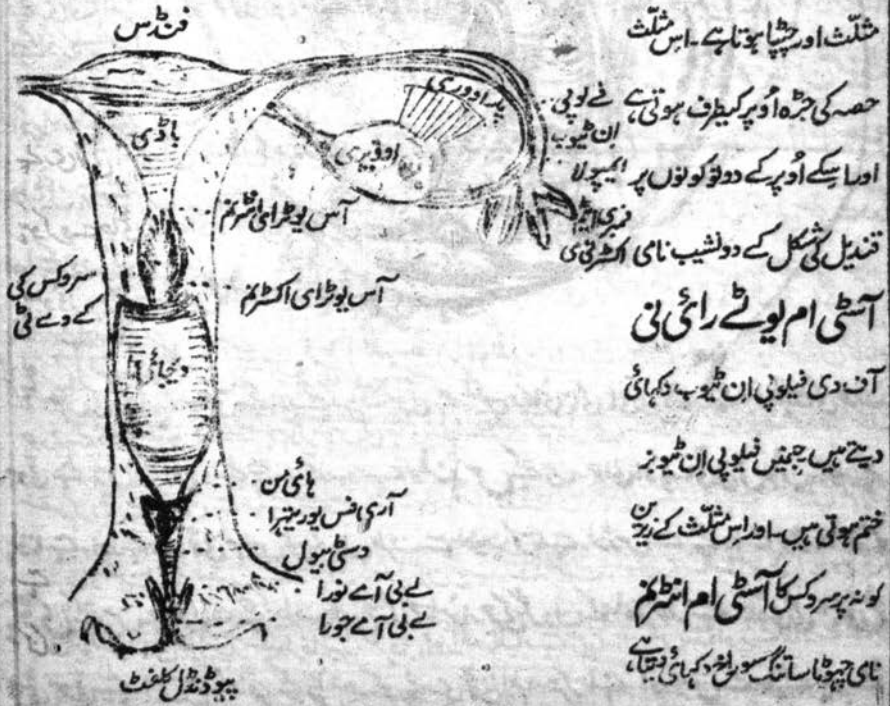 مثلّث اور چپٹا ہوتا ہے۔ اس مثلّث
حصہ کی جڑہ اُوپر کیطرف ہوتی ہے
اور اسکے اُوپر کے دونو کونوں پر
قندیل کی شکل کے دو نشیب نامی
آسٹی ام یوٹے رائی نی
آف دی فیلوپی اِن ٹیوب دکہائی
دیتے ہیں جنمیں فیلوپی اِن ٹیوبز
ختم ہوتی ہیں۔ اور اس مثلّث کے زیرین
کونہ پر سروکس کا آسٹی ام انٹرنم
نامی چہوٹا سا تنگ سوراخ دکہائی دیتا ہے
فنڈس
باڈی
پیراووری
اوویری
فے لوپی
اِن ٹیوب
ایمپولا
فمبری ایٹڈ
اکسٹرمٹی
آس یوٹرای انٹرنم
آس یوٹرای اکسٹرنم
سروکس کی
کے وے ٹی
ویجائنا
ہائی من
آری فس یوریتہرا
وسٹی بیول
لے بی آ مے نورا
لے بی آ مے جورا
پیوڈنڈل کلفٹ